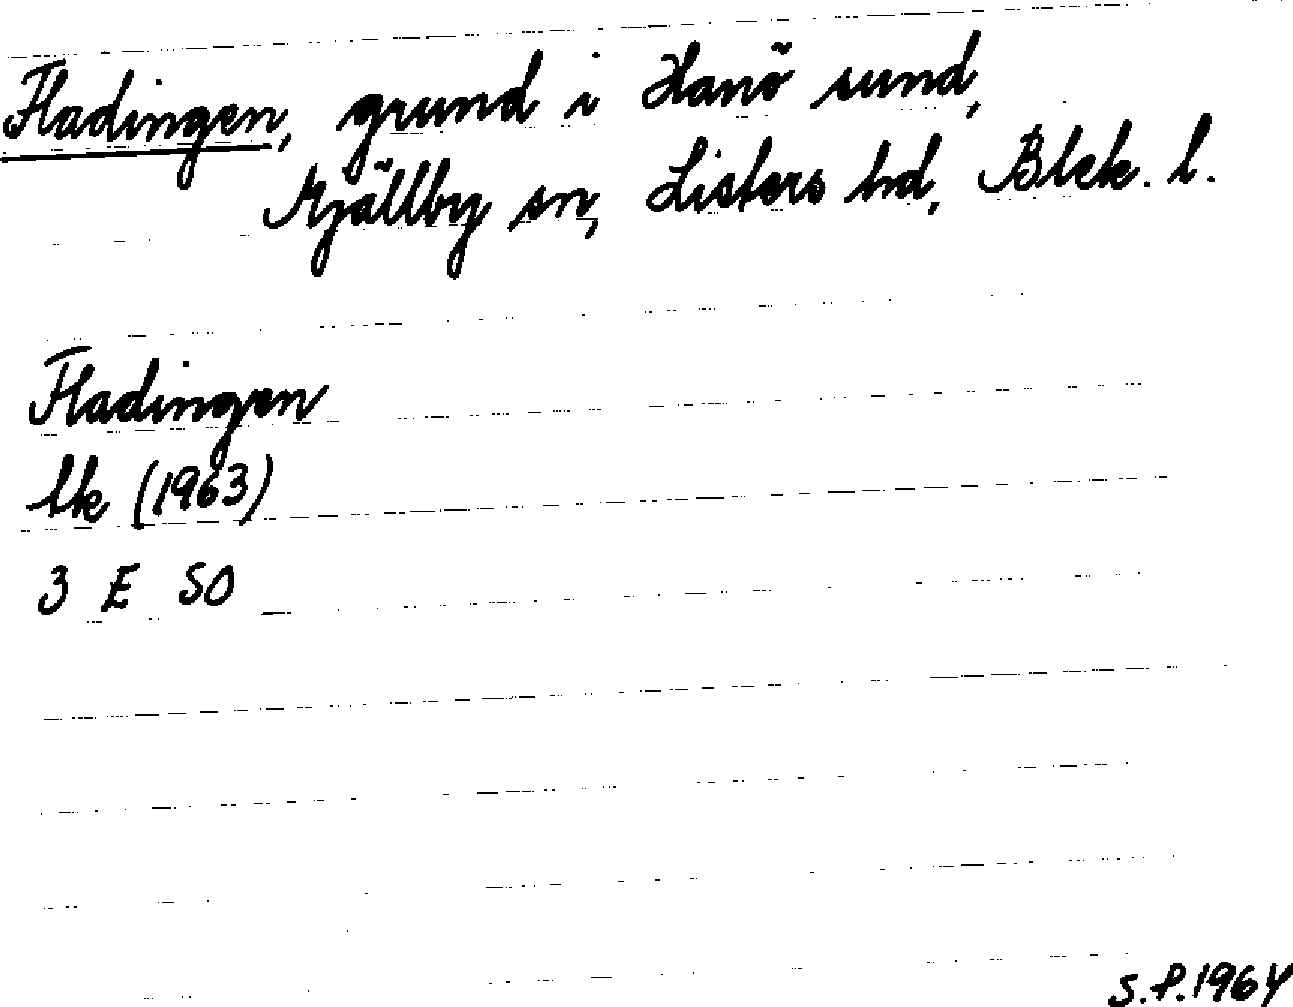 Fladingen, grund i Hanö sund,
Mjällby sn, Listers hd, Blek. l.
Fladingen
Uk (1963)
3 E SO
S.P.1964